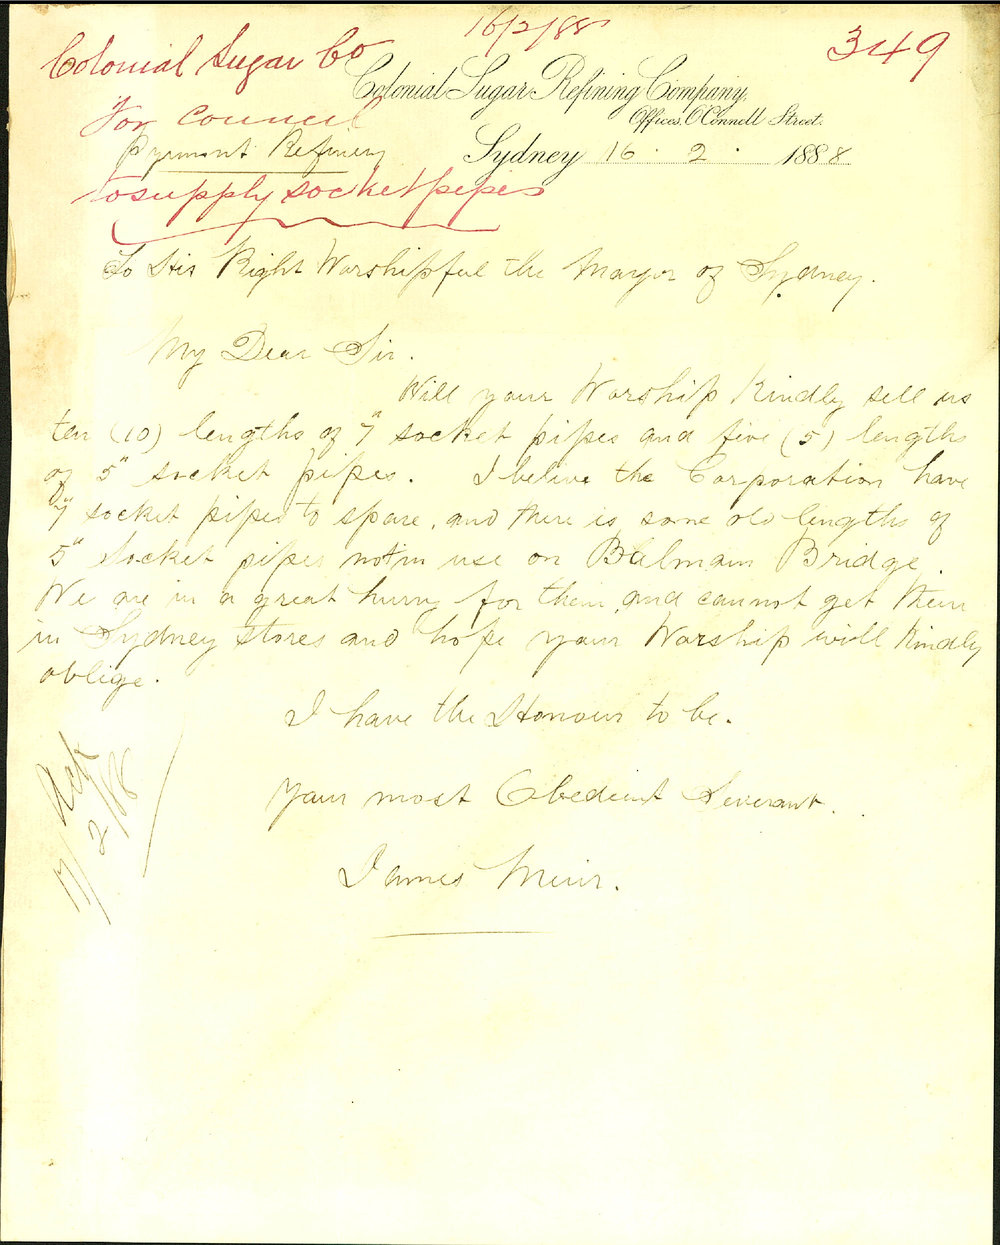 16/2/88
349
Colonial Sugar Co
Colonial Sugar Refining Company.
Offices. O'Connell Street.
For Council
Pyrmont Refinery
Sydney 16. 2. 1888
to supply socket pipes
To His Right Worshipful the Mayor of Sydney.
My Dear Sir.
Will your Worship Kindly sell us
ten (10) lengths of 7" socket pipes and five (5) lengths
of 5" socket pipes. I belive the Corporation have
7" socket pipes to spare, and there is some old lengths of
5" socket pipes not in use on Balmain Bridge.
We are in a great hurry for them, and cannot get them
in Sydney stores and hope your Worship will Kindly
oblige.
I have the Honour to be.
Your most Obedient Serverant.
James Muir.
Ack
17/2/88